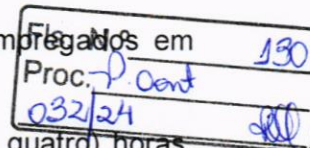 mpregados em
Fls. Nº 130
Proc. P. Cont
032/24
quatro) horas